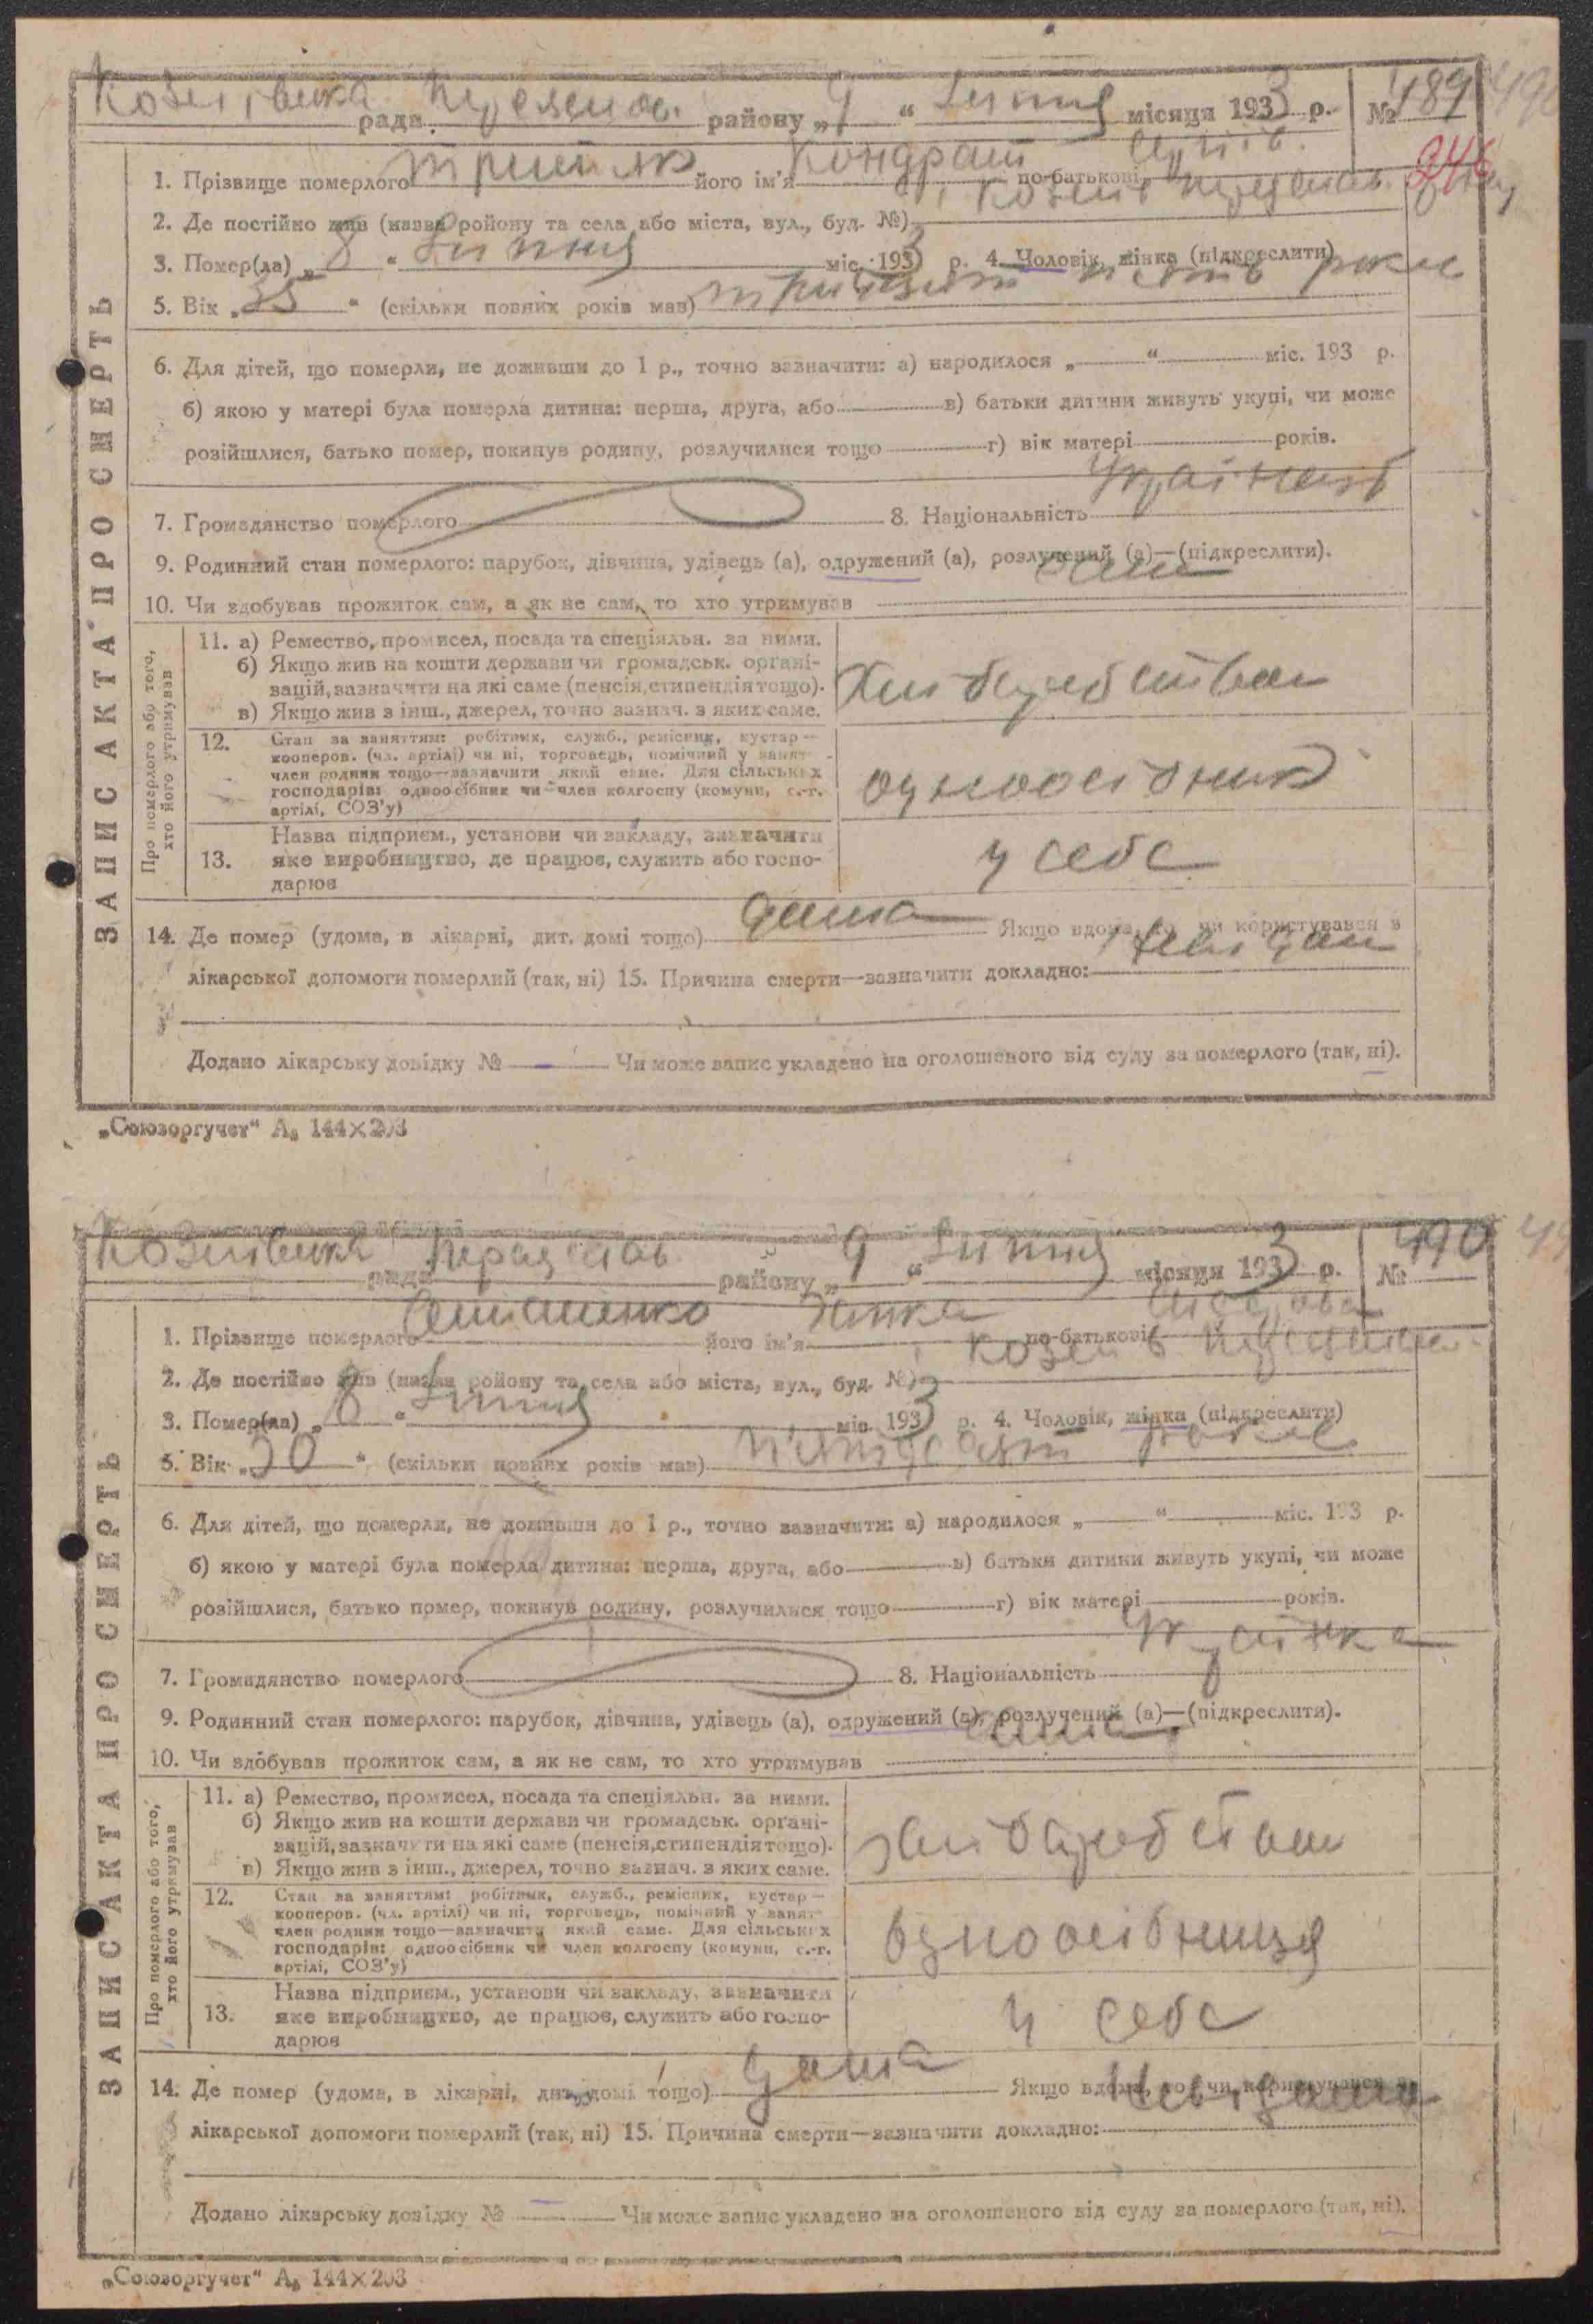 Козлівська рада Переяслав. району „9“ Липня місяця 1933 р. № 489 490
1. Прізвище померлого його ім'я Кондрат по-батькові 246
2. Де постійно жив (назва району та села або міста, вул., буд. №) Козлів Переяслав.
3. Помер(ла) „8“ Липня міс. 1933 р. 4. Чоловік, жінка (підкреслити)
5. Вік „35“ (скільки повних років мав) тридцять пять роки
6. Для дітей, що померли, не доживши до 1 р., точно зазначити: а) народилося „ “ міс. 193 р.
б) якою у матері була померла дитина: перша, друга, або в) батьки дитини живуть укупі, чи може
розійшлися, батько помер, покинув родину, розлучилися тощо г) вік матері років.
7. Громадянство померлого 8. Національність Українець
9. Родинний стан померлого: парубок, дівчина, удівець (а), одружений (а), розлучений (а)—(підкреслити).
10. Чи здобував прожиток сам, а як не сам, то хто утримував сам
ЗАПИС АКТА ПРО СМЕРТЬ
Про померлого або того, хто його утримував
11. а) Ремество, промисел, посада та спеціяльн. за ними.
б) Якщо жив на кошти держави чи громадськ. органі-
зацій, зазначити на які саме (пенсія, стипендія тощо).
в) Якщо жив з інш., джерел, точно зазнач. з яких саме.
Хліборобством
12. Стан за заняттям: робітник, служб., ремісник, кустар—
кооперов. (чл. артілі) чи ні, торговець, помічний у занят-
член родини тощо—зазначити який саме. Для сільських
господарів: одноосібник чи член колгоспу (комуни, с.-г.
артілі, СОЗ'у)
одноосібник
13. Назва підприєм., установи чи закладу, зазначити
яке виробництво, де працює, служить або госпо-
дарює
у себе
14. Де помер (удома, в лікарні, дит. домі тощо) дома Якщо вдома, то чи користувався з
лікарської допомоги померлий (так, ні) 15. Причина смерти—зазначити докладно: Невідом
Додано лікарську довідку № Чи може запис укладено на оголошеного від суду за померлого (так, ні).
„Союзоргучет“ А₅ 144×203
Козлівська рада Переяслав району „9“ Липня місяця 1933 р. № 490
1. Прізвище померлого його ім'я по-батькові
2. Де постійно жив (назва району та села або міста, вул., буд. №) Козлів
3. Помер(ла) „8“ Липня міс. 1933 р. 4. Чоловік, жінка (підкреслити)
5. Вік „50“ (скільки повних років мав) пятдесят роки
6. Для дітей, що померли, не доживши до 1 р., точно зазначити: а) народилося „ “ міс. 193 р.
б) якою у матері була померла дитина: перша, друга, або в) батьки дитини живуть укупі, чи може
розійшлися, батько помер, покинув родину, розлучилися тощо г) вік матері років.
7. Громадянство померлого 8. Національність Українка
9. Родинний стан померлого: парубок, дівчина, удівець (а), одружений (а), розлучений (а)—(підкреслити).
10. Чи здобував прожиток сам, а як не сам, то хто утримував сама
ЗАПИС АКТА ПРО СМЕРТЬ
Про померлого або того, хто його утримував
11. а) Ремество, промисел, посада та спеціяльн. за ними.
б) Якщо жив на кошти держави чи громадськ. органі-
зацій, зазначити на які саме (пенсія, стипендія тощо).
в) Якщо жив з інш., джерел, точно зазнач. з яких саме.
хліборобством
12. Стан за заняттям: робітник, служб., ремісник, кустар—
кооперов. (чл. артілі) чи ні, торговець, помічний у занят-
член родини тощо—зазначити який саме. Для сільських
господарів: одноосібник чи член колгоспу (комуни, с.-г.
артілі, СОЗ'у)
одноосібниця
13. Назва підприєм., установи чи закладу, зазначити
яке виробництво, де працює, служить або госпо-
дарює
у себе
14. Де помер (удома, в лікарні, дит. домі тощо) дома Якщо вдома, то чи користувався з
лікарської допомоги померлий (так, ні) 15. Причина смерти—зазначити докладно: Невідома
Додано лікарську довідку № Чи може запис укладено на оголошеного від суду за померлого (так, ні).
„Союзоргучет“ А₅ 144×203